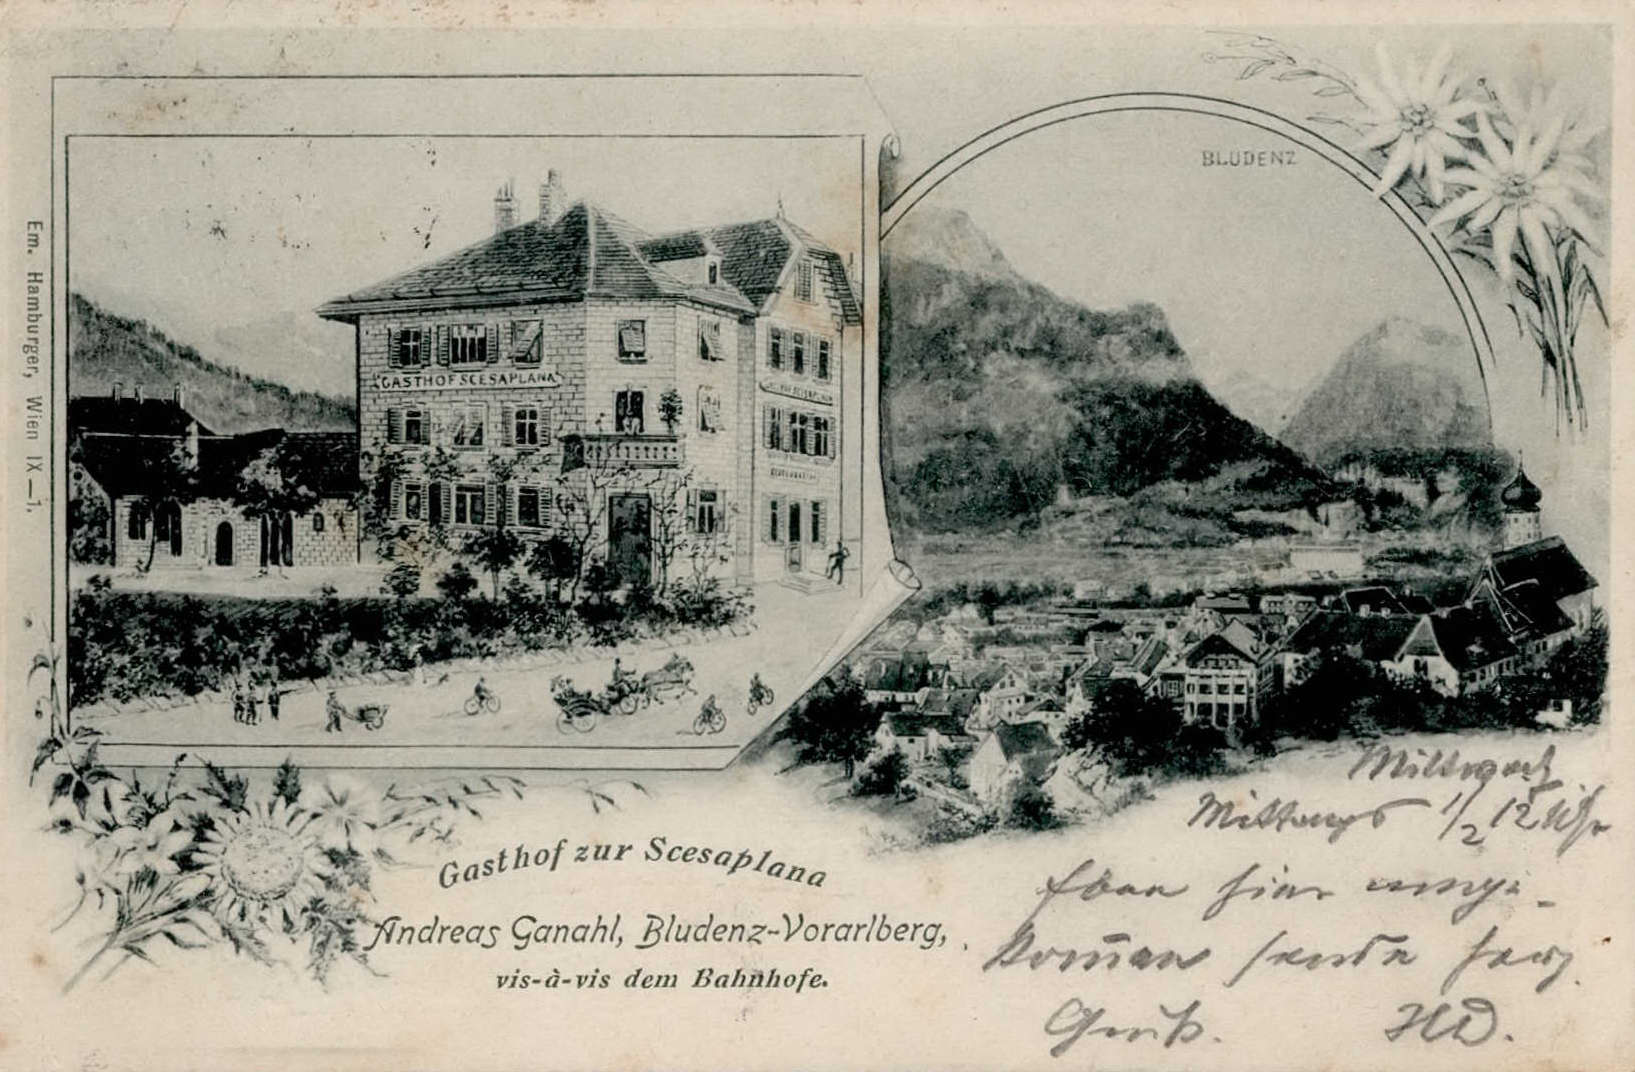 BLUDENZ
GASTHOF SCESAPLANA
Em. Hamburger, Wien IX—1.
Gasthof zur Scesaplana
Andreas Ganahl, Bludenz-Vorarlberg,
vis-à-vis dem Bahnhofe.
Mittwoch
Mittags 1/2 12 Uhr
Eben hier ange-
kommen sende herz.
Gruß. HD.